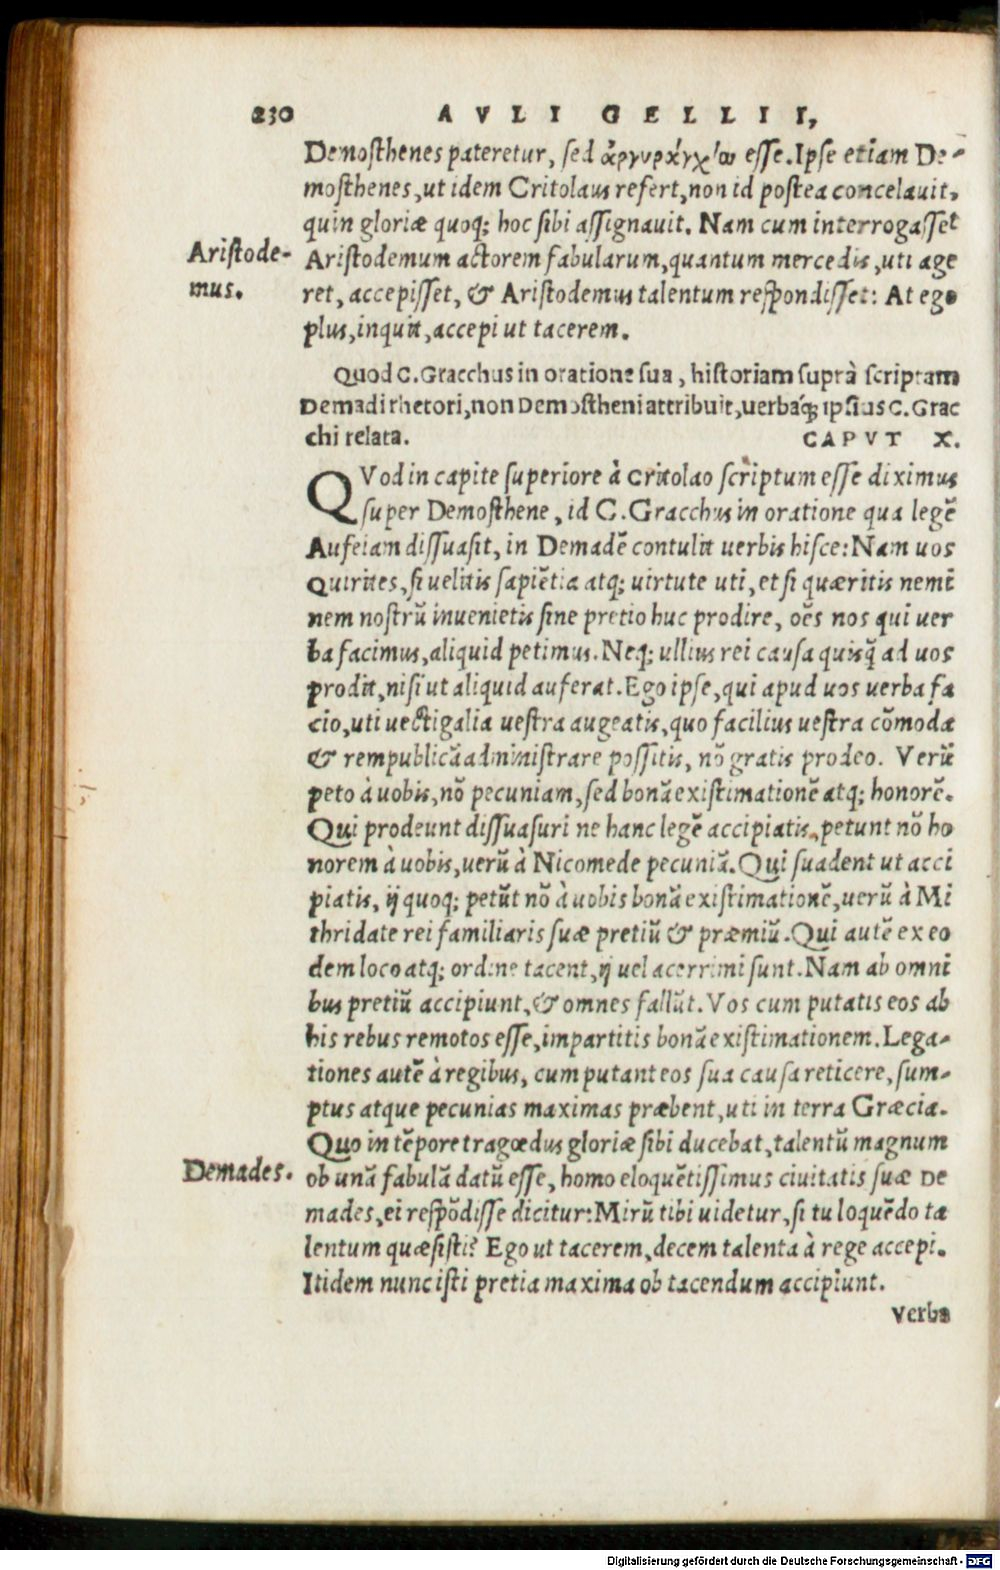 230 AVLI GELLII,
Demosthenes pateretur, sed ἀργυράγχίω esse. Ipse etiam De-
mosthenes, ut idem Critolaus refert, non id postea concelauit,
quin gloriæ quoq; hoc sibi assignauit. Nam cum interrogasset
Aristode-
mus.
Aristodemum actorem fabularum, quantum mercedis, uti age
ret, accepisset, & Aristodemus talentum respondisset: At ego
plus, inquit, accepi ut tacerem.
Quod C. Gracchus in oratione sua, historiam suprà scriptam
Demadi rhetori, non Demostheni attribuit, uerbaq́; ipsius C. Grac
chi relata. CAPVT X.
QVod in capite superiore à Critolao scriptum esse diximus
super Demosthene, id C. Gracchus in oratione qua legē
Aufeiam dissuasit, in Demadē contulit uerbis hisce: Nam uos
Quirites, si uelitis sapiētia atq; uirtute uti, et si quæritis nemi
nem nostrū inuenietis sine pretio huc prodire, oēs nos qui uer
ba facimus, aliquid petimus. Neq; ullius rei causa quisq̃ ad uos
prodit, nisi ut aliquid auferat. Ego ipse, qui apud uos uerba fa
cio, uti uectigalia uestra augeatis, quo facilius uestra cōmoda
& rempublicā administrare possitis, nō gratis prodeo. Verū
peto à uobis, nō pecuniam, sed bonā existimationē atq; honorē.
Qui prodeunt dissuasuri ne hanc legē accipiatis, petunt nō ho
norem à uobis, uerū à Nicomede pecuniā. Qui suadent ut acci
piatis, ij quoq; petūt nō à uobis bonā existimationē, uerū à Mi
thridate rei familiaris suæ pretiū & præmiū. Qui autē ex eo
dem loco atq; ordine tacent, ij uel acerrimi sunt. Nam ab omni
bus pretiū accipiunt, & omnes fallūt. Vos cum putatis eos ab
his rebus remotos esse, impartitis bonā existimationem. Lega-
tiones autē à regibus, cum putant eos sua causa reticere, sum-
ptus atque pecunias maximas præbent, uti in terra Græcia.
Quo in tēpore tragœdus gloriæ sibi ducebat, talentū magnum
Demades.
ob unā fabulā datū esse, homo eloquētissimus ciuitatis suæ De
mades, ei respōdisse dicitur: Mirū tibi uidetur, si tu loquēdo ta
lentum quæsisti? Ego ut tacerem, decem talenta à rege accepi.
Itidem nunc isti pretia maxima ob tacendum accipiunt.
Verba
Digitalisierung gefördert durch die Deutsche Forschungsgemeinschaft - DFG